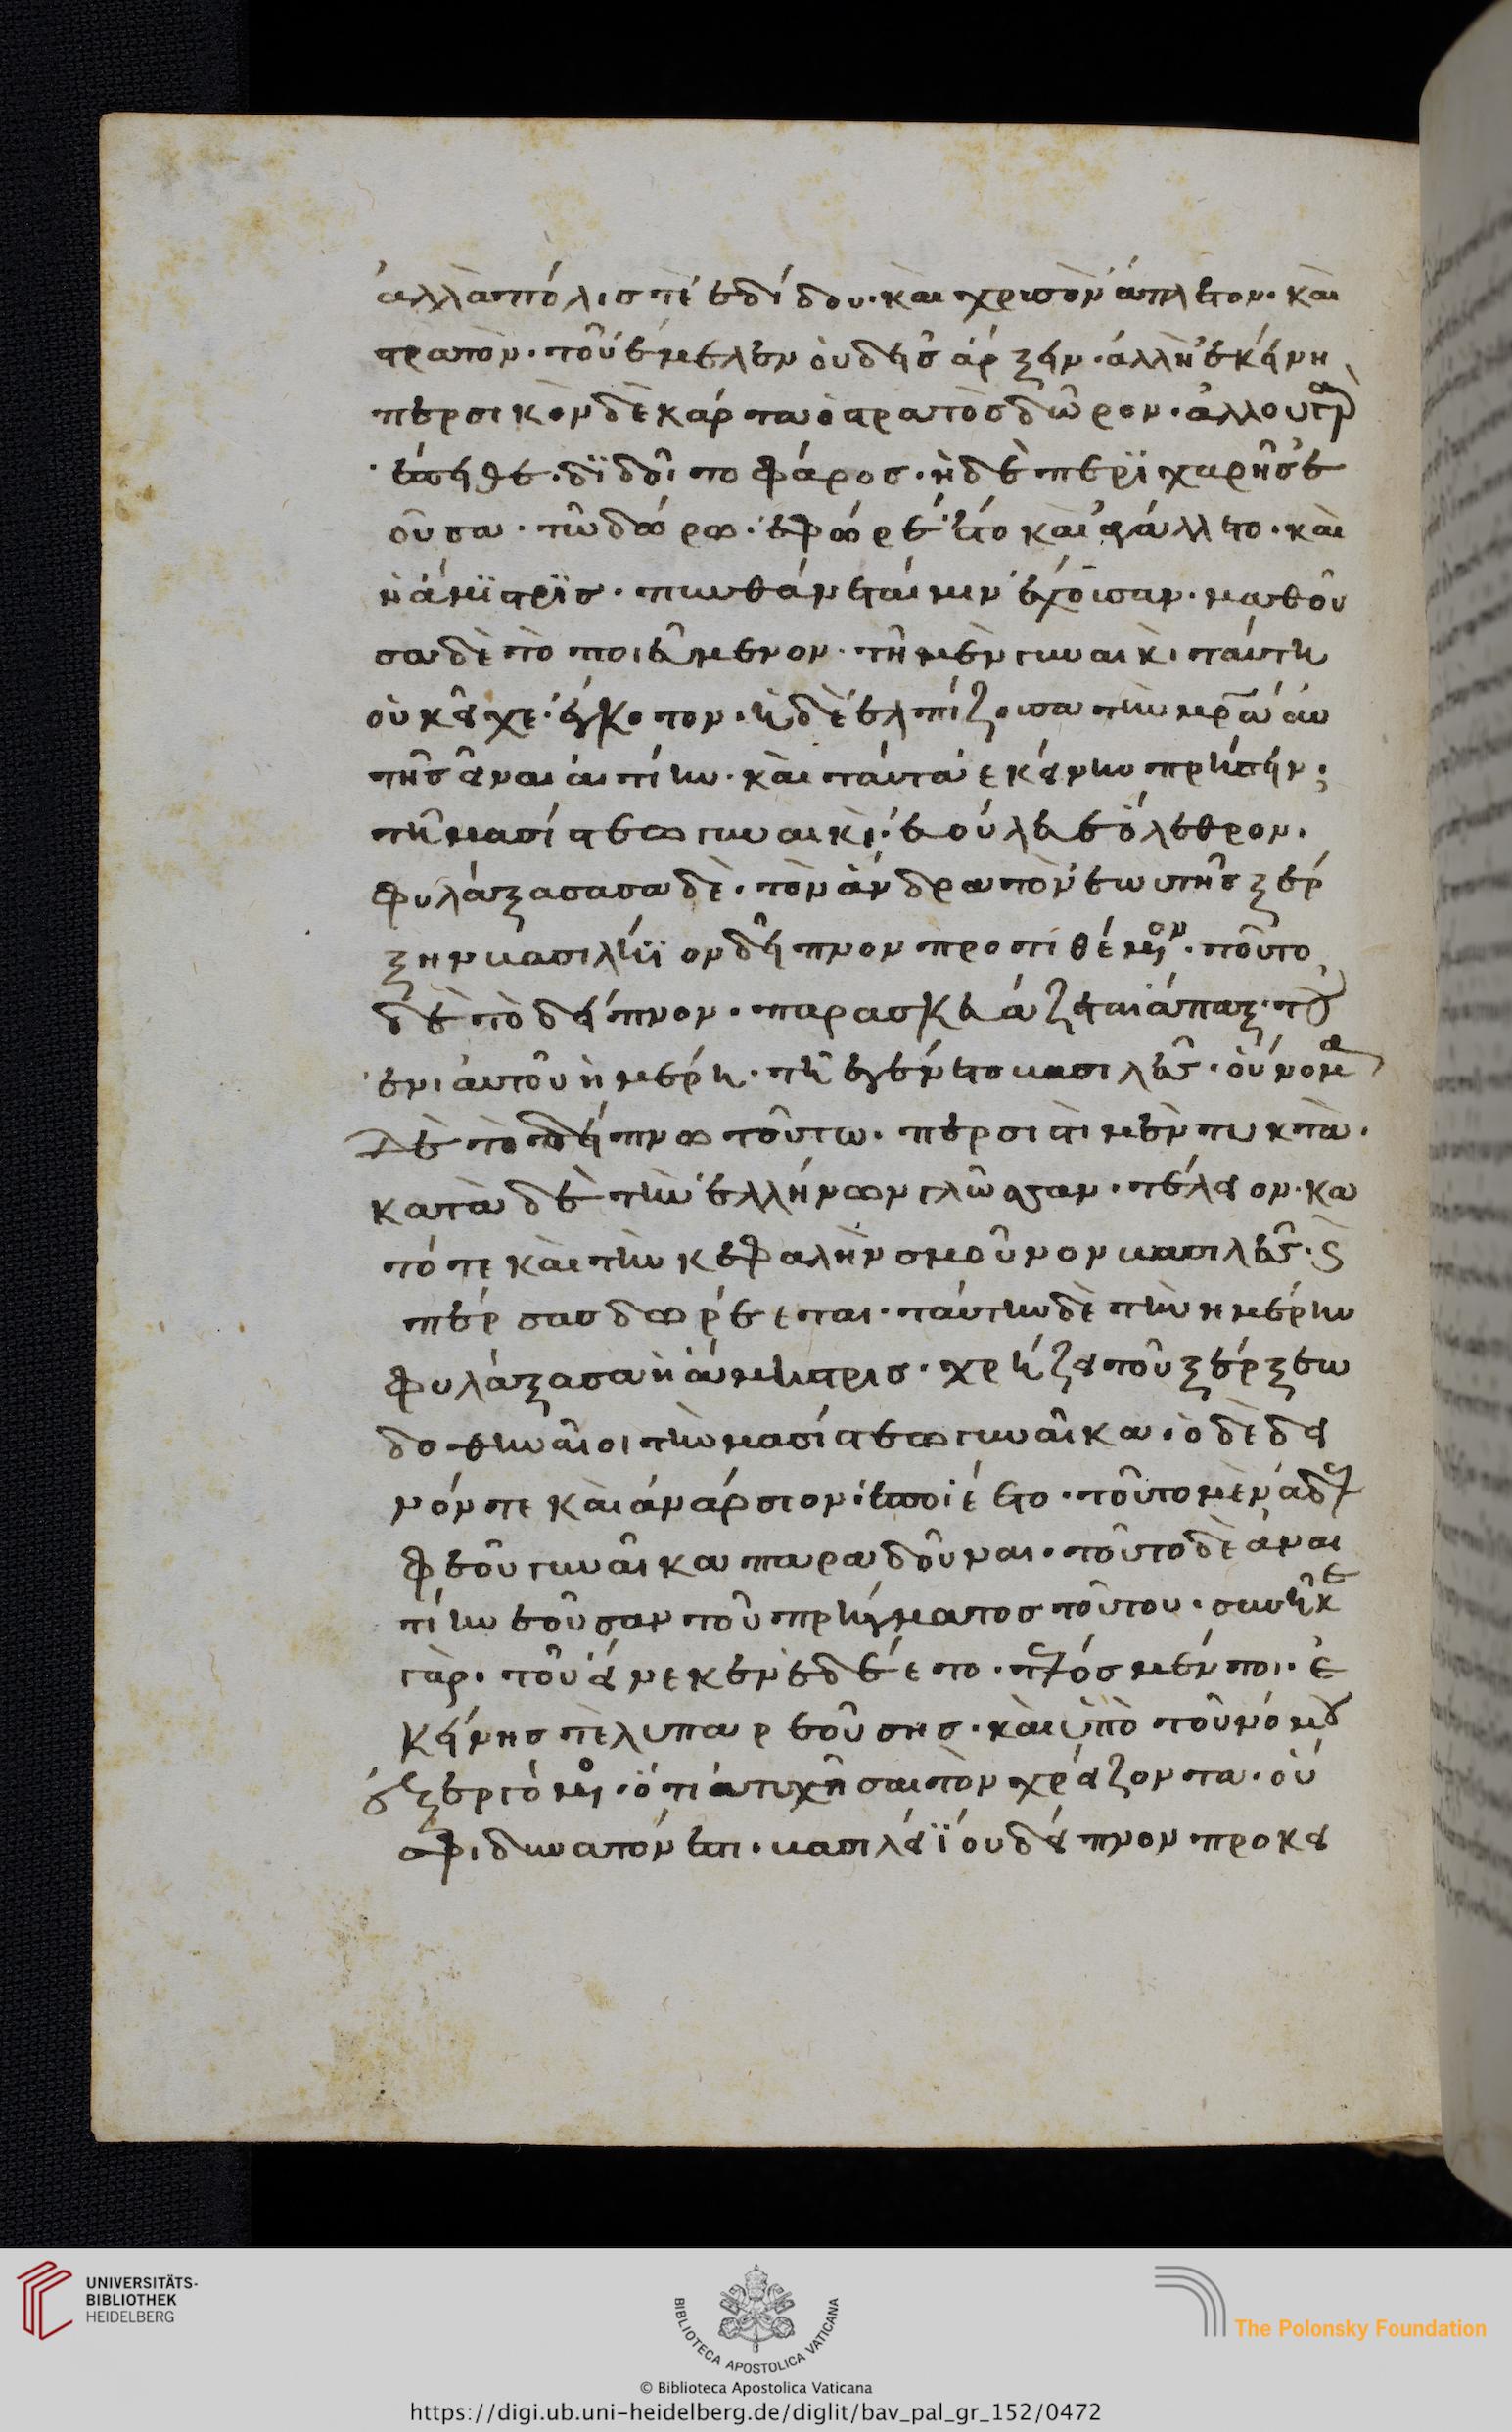 ἀλλὰ πόλις τὲ ἐδίδου· καὶ χρυσὸν ἄπλετον· καὶ
στρατὸν· τοῦ ἔμελλεν οὐδεὶς ἄρξειν· ἀλλ' ἢ ἐκείνη
περσικὸν δὲ κάρτα ὁ στρατὸς δῶρον· ἀλλ' οὐ γὰρ
ἔπειθε· διδοῖ το φάρος· ἡ δὲ περιχαρὴς ἐ
οῦσα· τῶ δώρω· ἐφόρεέ το καὶ ἀγάλλετο· καὶ
ἡ ἄμιστρις· πυνθάνεταί μιν ἔχουσαν· μαθοῦ
σα δὲ τὸ ποιεύμενον· τῆ μὲν γυναικὶ ταύτη
οὐκ εἶχε· ἔγκοτον· ἡ δὲ ἐλπίζουσα τὴν μρα αὐ
τῆς εἶναι αἰτίην· καὶ ταῦτα ἐκείνην πρήσσειν·
τῆ μασίστεω γυναικὶ· ἐβούλευε ὄλεθρον·
φυλάξασασα δὲ· τὸν ἄνδρα τὸν ἑωυτῆς ξέρ
ξην βασιλήϊον δεῖπνον προτιθέμενον· τοῦτο
δὲ τὸ δεῖπνον· παρασκευάζεται ἅπαξ· τοῦ
ἐνιαυτοῦ ἡμέρη· τῆ ἐγένετο βασιλεύς· οὔνομα
δὲ τὸ δείπνω τούτω· περσιστὶ μὲν τυκτὰ·
κατὰ δὲ τὴν ἑλλήνων γλῶσσαν· τέλειον· κα
τότε καὶ τὴν κεφαλὴν σμοῦνον βασιλεύς· καὶ
πέρσας δωρέεται· ταύτην δὲ τὴν ἡμέρην
φυλάξασα ἡ ἄμηστρις· χρήζει τοῦ ξέρξεω
δοθῆναί οι τὴν μασίστεω γυναῖκα· ὁ δὲ δει
νόν τε καὶ ἀνάρσιον· ἐποιέετο· τοῦτο μὲν ἀδελ
φεοῦ γυναῖκα παραδοῦναι· τοῦτο δὲ ἀναι
τίην ἐοῦσαν τοῦ πρήγματος τούτου· συνῆκε
γὰρ· τοῦ εἵνεκεν ἐδέετο· τέλος μέν τοι· ἐ
κείνης τὲ λιπαρεούσης· καὶ ὑπὸ τοῦ νόμου
ἐξεργόμενος· ὅτι ἀτυχῆσαι τὸν χρήζοντα· οὔ
σφι δυνατόν ἐστι· βασιλήϊου δείπνου προκει
UNIVERSITÄTS-
BIBLIOTHEK
HEIDELBERG
BIBLIOTECA APOSTOLICA VATICANA
The Polonsky Foundation
© Biblioteca Apostolica Vaticana
https://digi.ub.uni-heidelberg.de/diglit/bav_pal_gr_152/0472